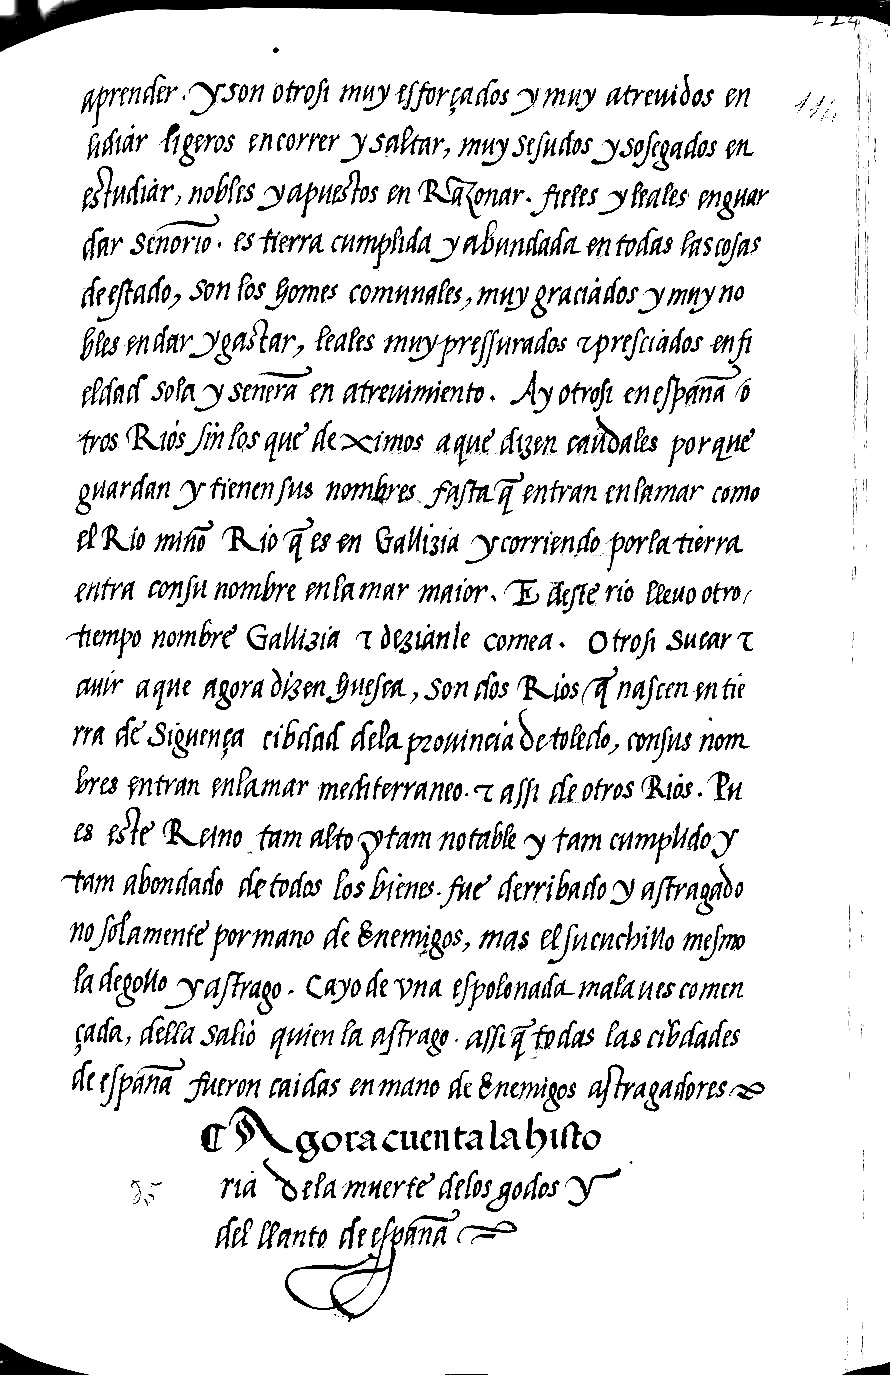 aprender. y son otrosi muy esforçados y muy atreuidos en
lidiar ligeros en correr y saltar, muy sesudos y sosegados en
estudiar, nobles y apuestos en Razonar. fieles y leales en guar
dar señorio. es tierra cumplida y abundada en todas las cosas
de estado, son los homes comunales, muy graciados y muy no
bles en dar y gastar, leales muy pressurados τ presciados en fi
eldad sola y señera en atreuimiento. Ay otrosi en españa o
tros Rios sin los que deximos a que dizen caudales porque
guardan y tienen sus nombres fasta q̃ entran en la mar como
el Rio miño Rio q̃ es en Gallizia y corriendo por la tierra
entra con su nombre en la mar maior. E deste rio lleuo otro
tiempo nombre Gallizia τ dezianle comea. Otrosi Sucar τ
auir a que agora dizen huesca, son dos Rios q̃ nascen en tie
rra de Siguença cibdad de la prouincia de toledo, con sus nom
bres entran en la mar mediterraneo. τ assi de otros Rios. Pu
es este Reino tam alto y tam notable y tam cumplido y
tam abondado de todos los bienes. fue derribado y astragado
no solamente por mano de Enemigos, mas el su cuchillo mesmo
la degollo y astrago. Cayo de vna espolonada mala ues comen
çada, della salio quien la astrago. assi q̃ todas las cibdades
de españa fueron caidas en mano de Enemigos astragadores
¶ Agora cuenta la histo
ria de la muerte de los godos y
del llanto de españa